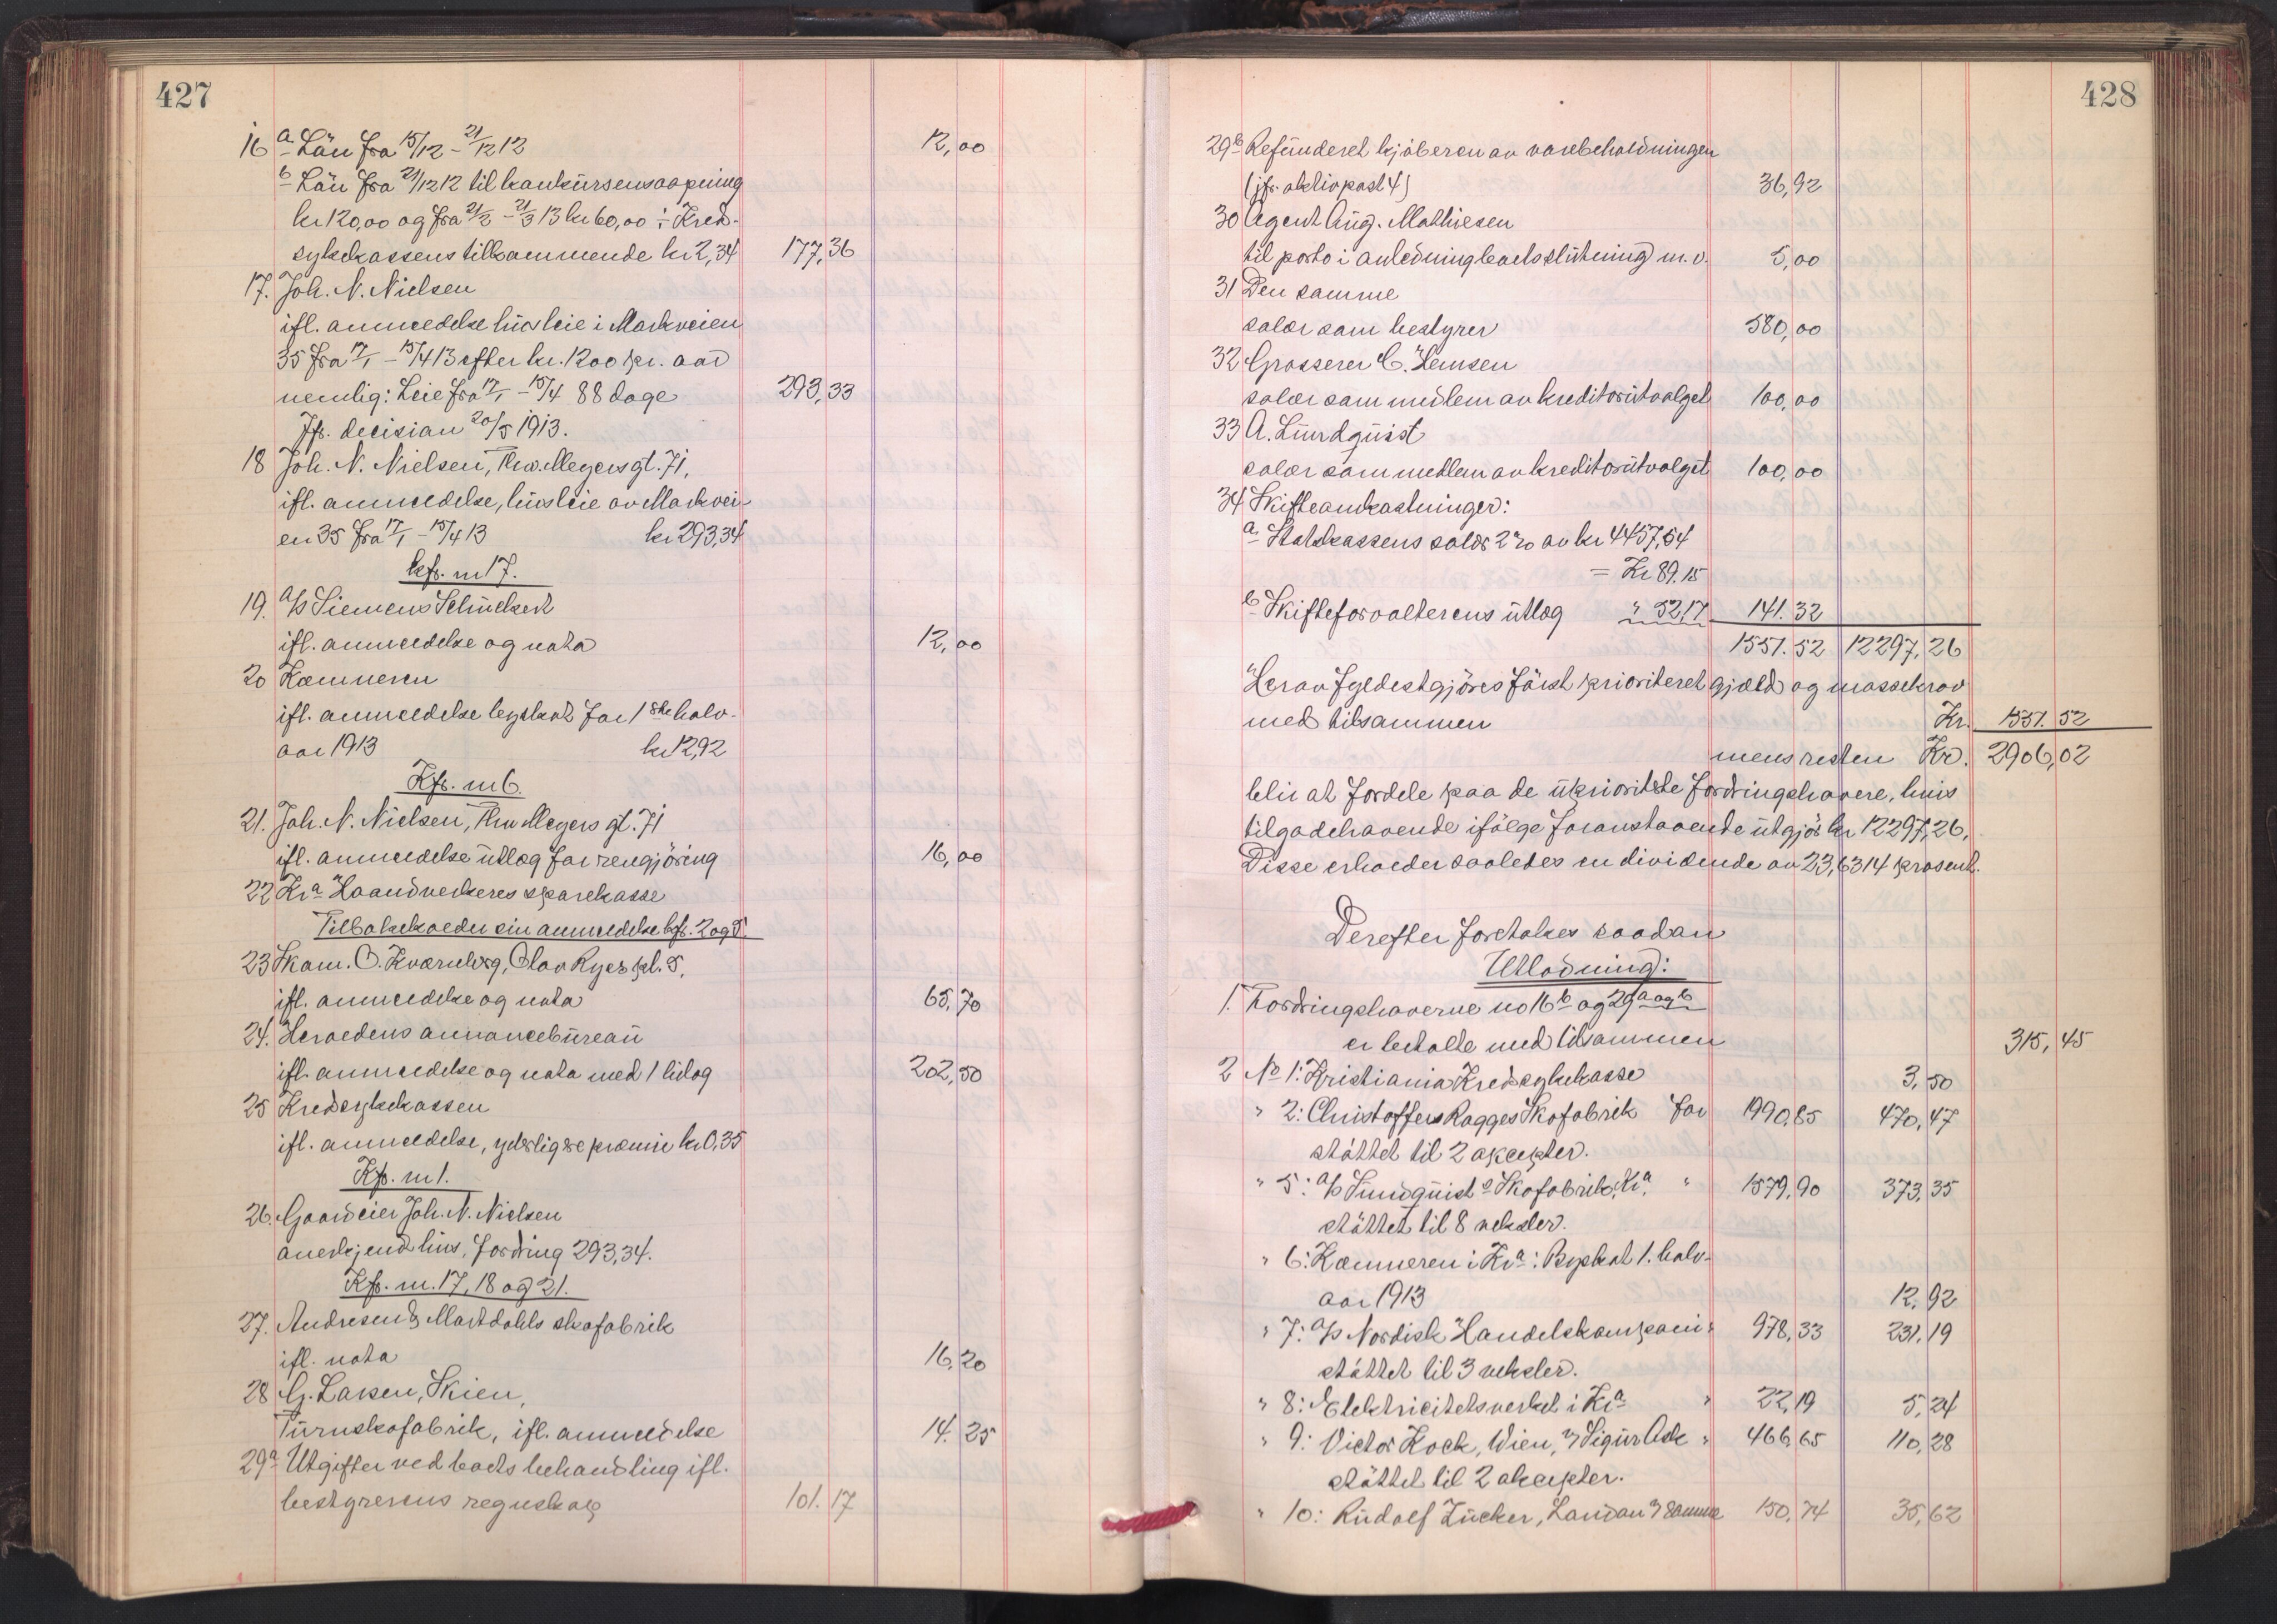 427
16 a Lön fra 15/12 - 21/12 12 12,00
b Lön fra 21/12 12 til konkursensaapning
kr 120,00 og fra 21/2 - 21/3 13 kr 60,00 ÷ Kred-
sykekassens tilkommende kr 2,34 177,36
17. Joh. N. Nielsen
ifl. anmeldelse husleie i Markveien
35 fra 17/1 - 15/4 13 efter kr. 1200 pr. aar
nemlig: Leie fra 17/1 - 15/4 88 dage 293,33
Jfr. decision 20/5 1913.
18 Joh. N. Nielsen, Thv. Meyers gt. 71,
ifl. anmeldelse, husleie av Markvei-
en 35 fra 17/1 - 15/4 13 kr 293,34
kfr. nr 17.
19. A/S Siemens Schuckert
ifl. anmeldelse og nota 12,00
20 Kæmneren
ifl. anmeldelse byskat for 1ste halv-
aar 1913 kr 12,92
Kfr. nr 6.
21. Joh. N. Nielsen, Thv Meyers gt. 71
ifl. anmeldelse utlæg for rengjöring 16,00
22 Kra Haandverkeres sparekasse
Tilbakekalder sin anmeldelse kfr. 2 og 5.
23 Skom. O. Kvernberg, Olav Ryes pl. 5,
ifl. anmeldelse og nota 65,70
24. Heroldens annoncebureau
ifl. anmeldelse og nota med 1 bilag 202,50
25 Kredsykekassen
ifl. anmeldelse, yderligere præmie kr 0,35
Kfr. nr 1.
26. Gaardeier Joh. N. Nielsen
anerkjend hus, fordring 293,34.
Kfr. nr. 17, 18 og 21.
27. Andresen & Martdahls skofabrik
ifl. nota 16,20
28 G. Larsen, Skien,
Turnskofabrik, ifl. anmeldelse 14.25
29a Utgifter ved boets behandling ifl.
bestyrerens regnskap 101.17
428
29b Refunderet kjöberen av varebeholdningen
(jfr. aktivpost 4) 36,92
30 Agent Aug. Mathiesen
til porto i anledning boets slutning m.v. 5,00
31 Den samme
salær som bestyrer 580,00
32 Grosserer C. Hemsen
salær som medlem av kreditorutvalget 100,00
33 A. Lundquist
salær som medlem av kreditorutvalget 100,00
34 Skifteomkostninger:
a. Statskassens salær 2% av kr 4457,54
= Kr 89.15
b Skifteforvalterens utlæg " 52,17 141.32
1551.52 12297,26
Herav fyldestgjöres först prioriteret gjæld og massekrav
med tilsammen Kr. 1551.52
mens resten Kr. 2906,02
blir at fordele paa de uprioriterte fordringshavere, hvis
tilgodehavende ifölge foranstaaende utgjör kr 12297,26.
Disse erholder saaledes en dividende av 23,6314 prosent.
Derefter foretokes saadan
Utlodning:
1. Fordringshaverne no 16b og 29a og b
er betalte med tilsammen 315,45
2 No 1: Kristiania Kredssykekasse 3,50
" 2: Christoffers Ragges Skofabrik for 1990,85 470,47
støttet til 2 akcepter.
" 5: A/S Lundquists Skofabrik, Kra. " 1579,90 373,35
støttet til 8 veksler.
" 6: Kæmneren i Kra: Byskat 1. halv-
aar 1913 12,92
" 7: A/S Nordisk Handelskompani " 978,33 231,19
støttet til 3 veksler.
" 8: Elektricitetsverket i Kra " 22,19 5,24
" 9: Victor Kock, Wien, v/ Sigur Ask " 466,65 110,28
støttet til 2 akcepter.
" 10: Rudolf Zucker, Landau v/ samme 150,74 35,62